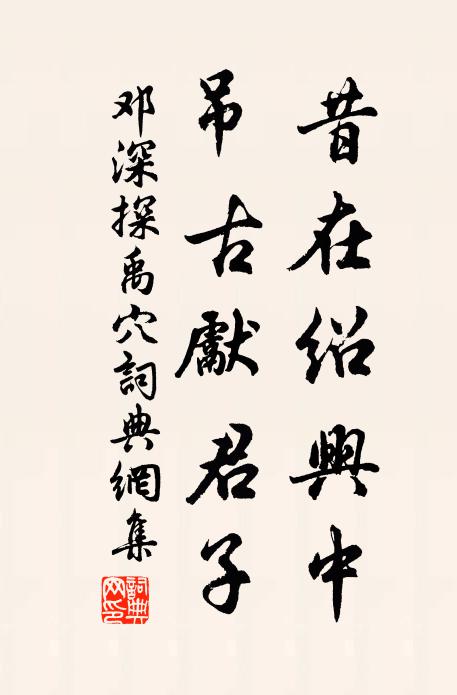 昔在绍興中
吊古獻君子
邓深探禹穴詞典網集
詞典网印